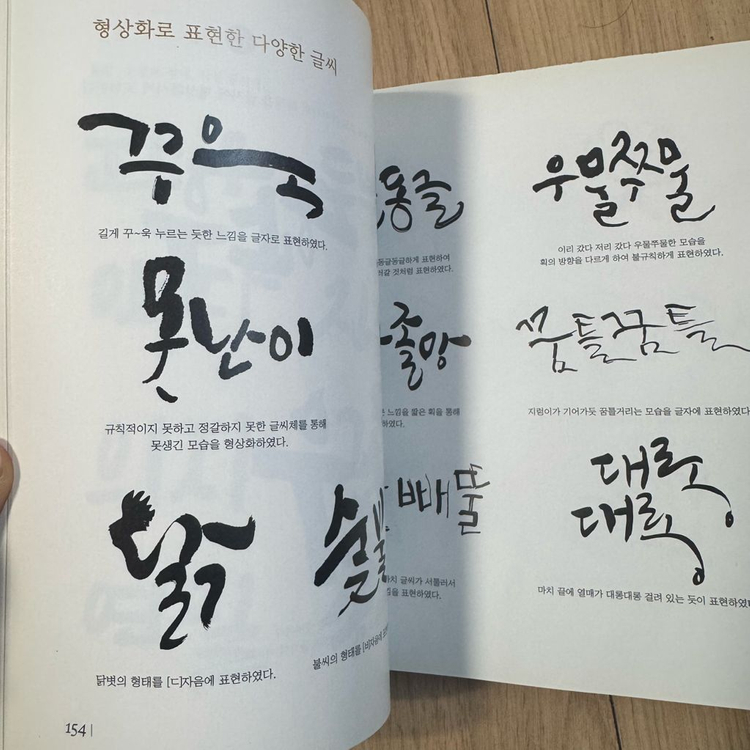 형상화로 표현한 다양한 글씨
꾸욱
길게 꾸~욱 누르는 듯한 느낌을 글자로 표현하였다.
못난이
규칙적이지 못하고 정갈하지 못한 글씨체를 통해
못생긴 모습을 형상화하였다.
닭
닭볏의 형태를 [ㄷ]자음에 표현하였다.
숯불
불씨의 형태를 [비]자음에
154
동글
둥글동글하게 표현하여
것처럼 표현하였다.
졸망
느낌을 짧은 획을 통해
하였다.
빼뚤
마치 글씨가 서툴러서
표현하였다.
우물쭈물
이리 갔다 저리 갔다 우물쭈물한 모습을
획의 방향을 다르게 하여 불규칙하게 표현하였다.
꿈틀꿈틀
지렁이가 기어가듯 꿈틀거리는 모습을 글자에 표현하였다
대롱
대롱
마치 끝에 열매가 대롱대롱 걸려 있는 듯이 표현하였다